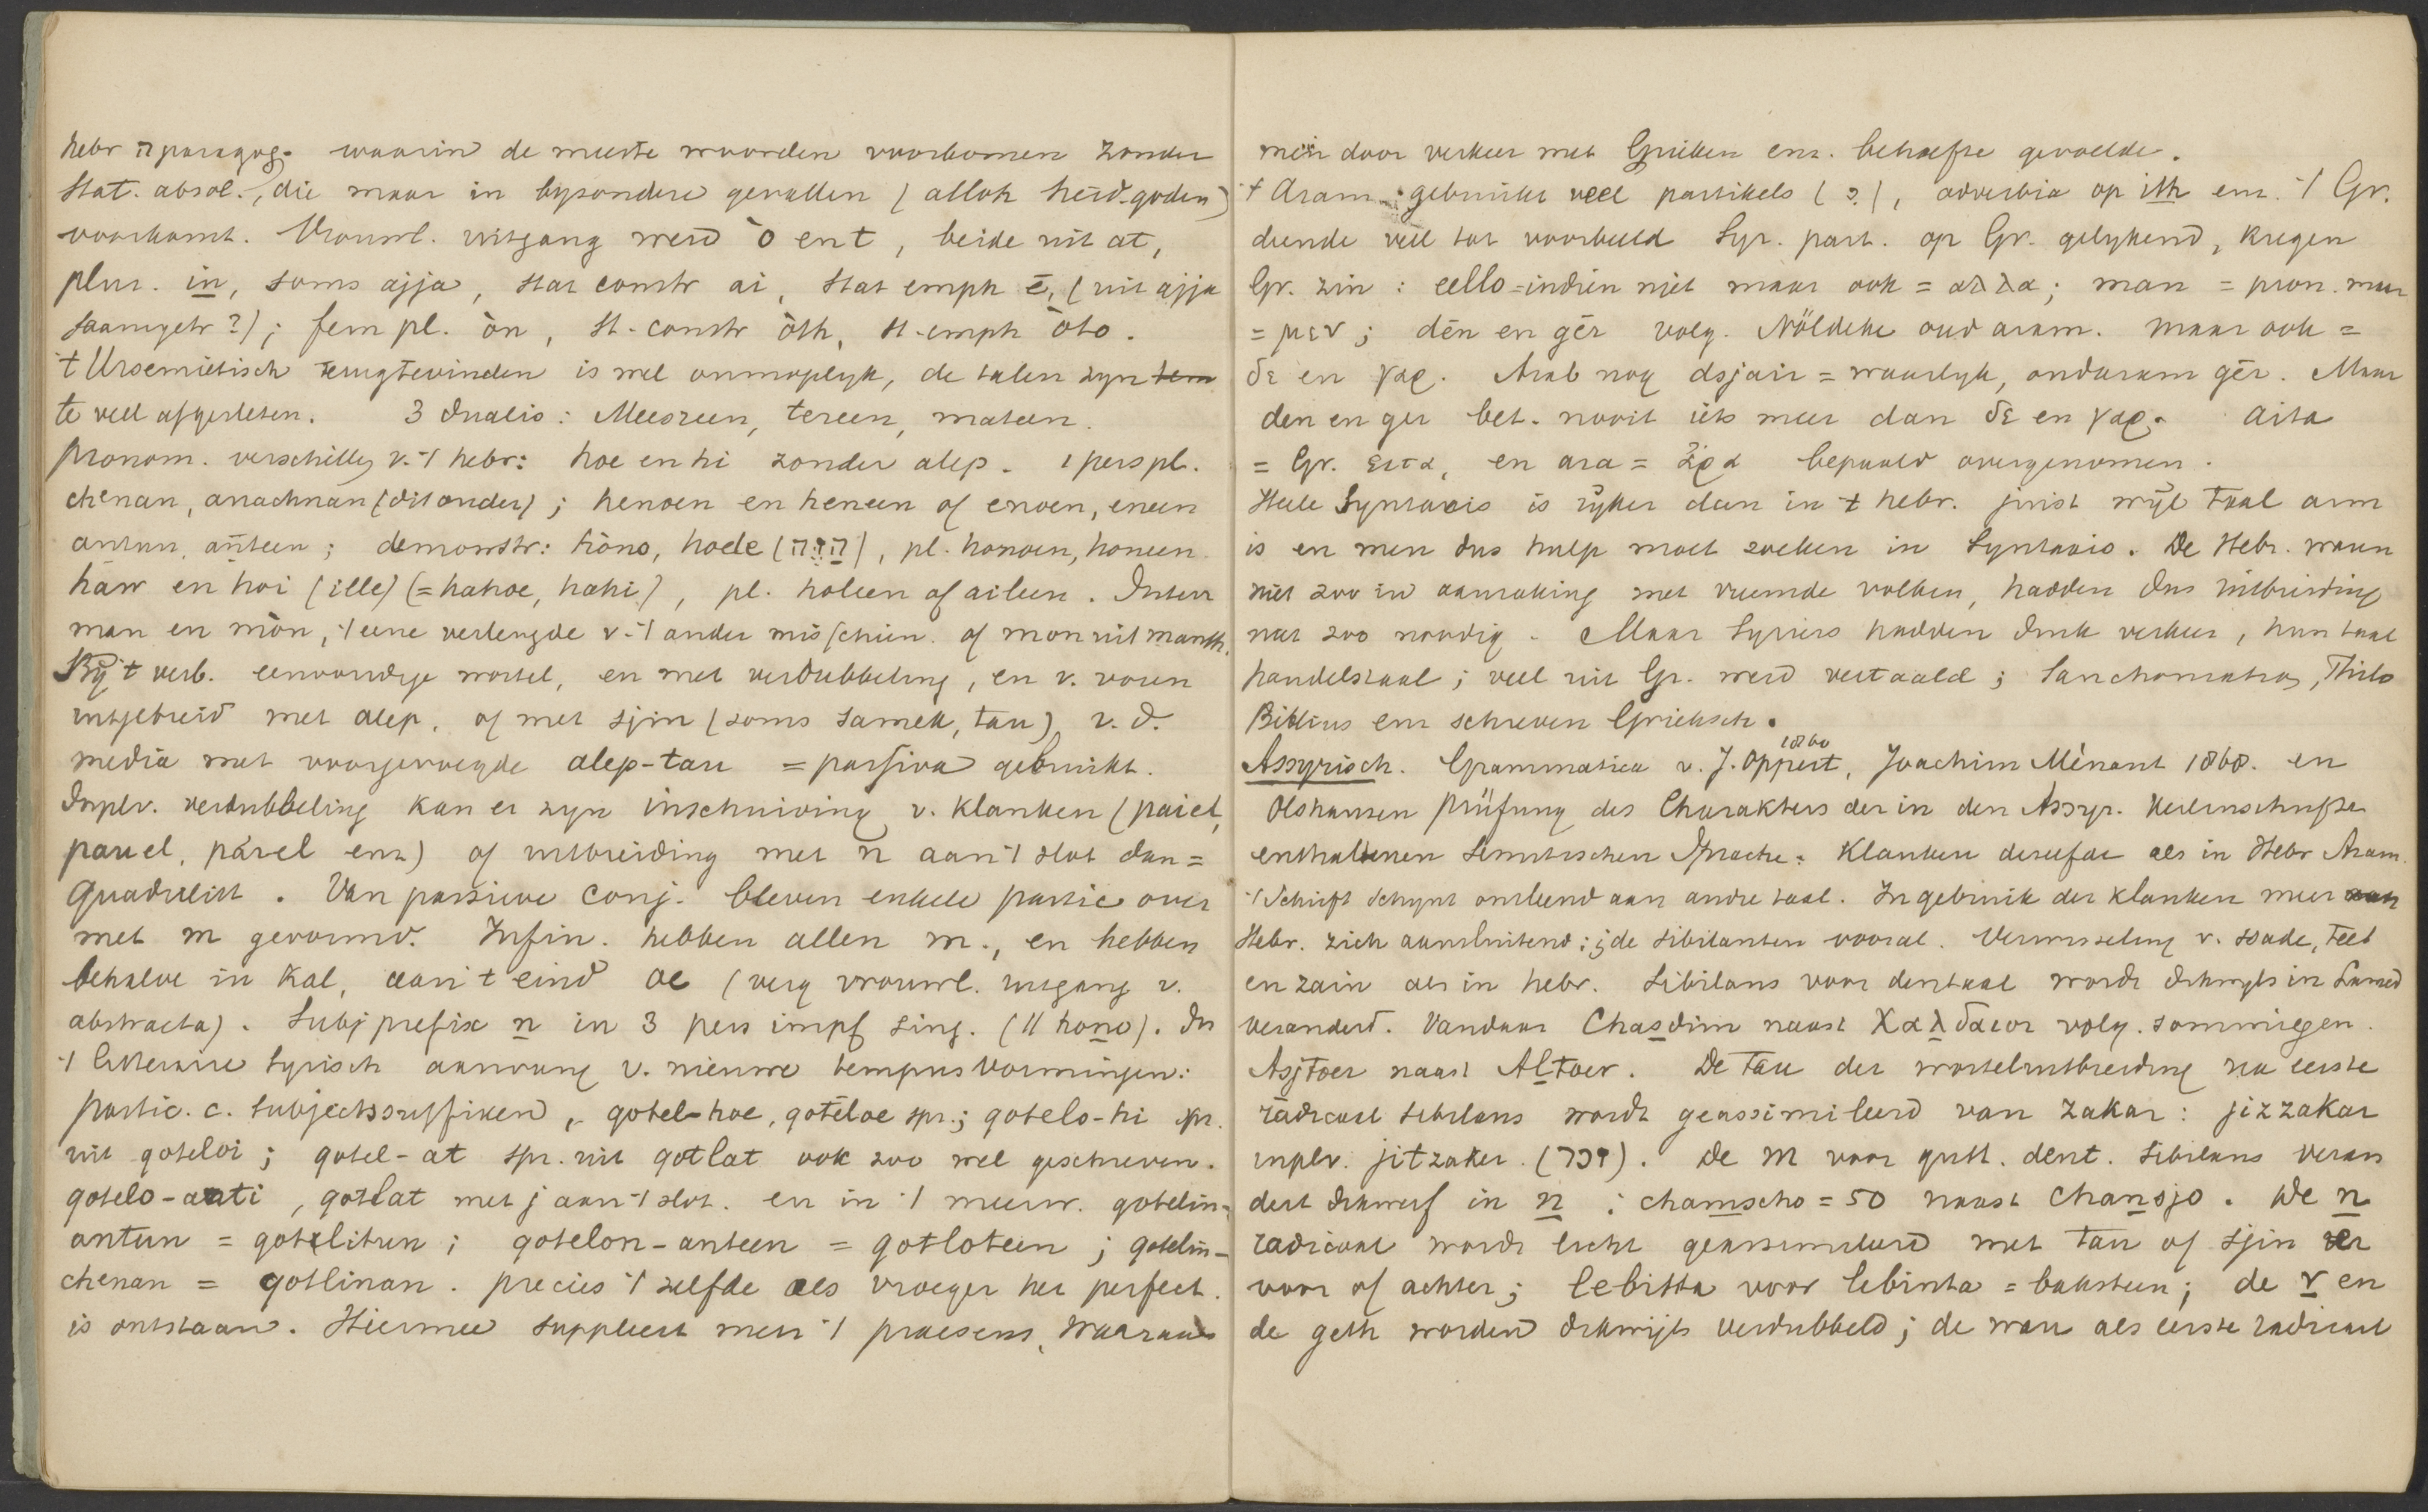 hebr ה paragog. waarin de meeste woorden voorkomen zonder
stat. absol., die maar in byzondere gevallen (alloh heid-goden)
voorkomt. Vrouwl. uitgang werd ò en t, beide uit at,
plur. in, soms ajja, stat constr ai, stat emph ē, (uit ajja
saamgetr?); fem pl. òn, st-constr òth, st-emph òto.
't Ursemietisch terugtevinden is wel onmoglyk, de talen zyn
te veel afgesleten. 3 dualis: Meesreen, tereen, mateen.
Pronom. verschillen v. 't hebr: hoe en hi zonder alep. 1 pers pl.
chenan, anachnan (dit ouder); henoen en heneen of enoen, eneen
antun, anteen; demonstr: hòno, hode, pl. honoen, honeen.
haw en hoi (ille) (=hahoe, hahi), pl. holeen of aileen. Interr
man en mòn, 't eene verlengde v. 't ander misschien of mon uit manth.
By 't verb. eenvoudige wortel, en met verdubbeling, en v. voren
uitgebreid met alep, of met sjin (soms samek, tau) v.d.
media met voorgevoegde alep-tau = passiva gebruikt.
Inplv. verdubbeling kan er zyn inschuiving v. klanken (paiel,
pauel, parel enz) of uitbreiding met n aan 't slot dan =
quadrilitt. Van passieve conj. bleven enkele partic over
met m gevormd. Infin. hebben allen m., en hebben
behalve in Kal, aan 't eind oe (verg vrouwl. uitgang v.
abstracta). Subj prefix n in 3 pers impf sing. (// hono). In
't litteraire Syrisch aanvang v. nieuwe tempusvormingen:
partic. c. subjectssuffixen, gotel-hoe, gotēloe spr.; gotelo-hi spr.
uit goteloi; gotel-at spr. uit gotlat ook zoo wel geschreven.
gotelo-anti, gotlat met j aan 't slot. en in 't meerv. gotelin-
antun = gotlitun; gotelon-anteen = gotloteen; gotelin-
chenan = gotlinan. precies 't zelfde als vroeger het perfect.
is ontstaan. Hiermee suppleert men 't praesens, waaraan
men door verkeer met Grieken enz. behoefte gevoelde.
't Aram. gebruikt veel partikels (?), adverbia op ith enz. 't Gr.
diende veel tot voorbeeld Syr. part. op Gr. gelykend, kregen
Gr. zin: ello=indien niet maar ook = αλλα; man = pron. maar
= μεν; dēn en gēr volg. Nöldeke oud aram. maar ook =
δε en γαρ. Arab nog dsjair = waarlyk, oudaram gēr. Maar
den en ger bet. nooit iets meer dan δε en γαρ. aita
= Gr. ειτα, en ara = ἄρα bepaald overgenomen.
Heele Syntaxis is ryker dan in 't hebr. juist wyl taal arm
is en men dus hulp moet zoeken in Syntaxis. De Hebr. waren
niet zoo in aanraking met vreemde volken, hadden dus uitbreiding
niet zoo noodig. Maar Syriers hadden druk verkeer, hun taal
handelstaal; veel uit Gr. werd vertaald; Sanchoniathon, Philo
Biblius enz schreven Grieksch.
Assyrisch. Grammatica v. J. Oppert 1860, Joachim Mènant 1868. en
Olshausen Prüfung des Charakters der in den Assyr. Keilinschriften
enthaltenen semitischen Sprache: Klanken dezelfde als in Hebr Aram.
't Schrift schynt ontleend aan andre taal. In gebruik der klanken meer
Hebr. zich aansluitend; de sibilanten vooral. Verwisseling v. ssade, teet
en zain als in hebr. Sibilans voor dentaal wordt dikwyls in Lamed
veranderd. Vandaar Chasdim naast Χαλδαιοι volg. sommigen.
Asjtoer naast Altoer. De tau der worteluitbreiding na eerste
radicaal sibilans wordt geassimileerd van zakar: jizzakar
inplv. jitzaker. (זכר). De m voor gutt. dent. sibilans veran
dert dikwerf in n: chamscho = 50 naast chansjo. De n
radicaal wordt licht geassimileerd met tau of sjin er
voor of achter; lebitta voor lebinta = baksteen; de r en
de geth worden dikwijls verdubbeld; de wau als eerste radicaal